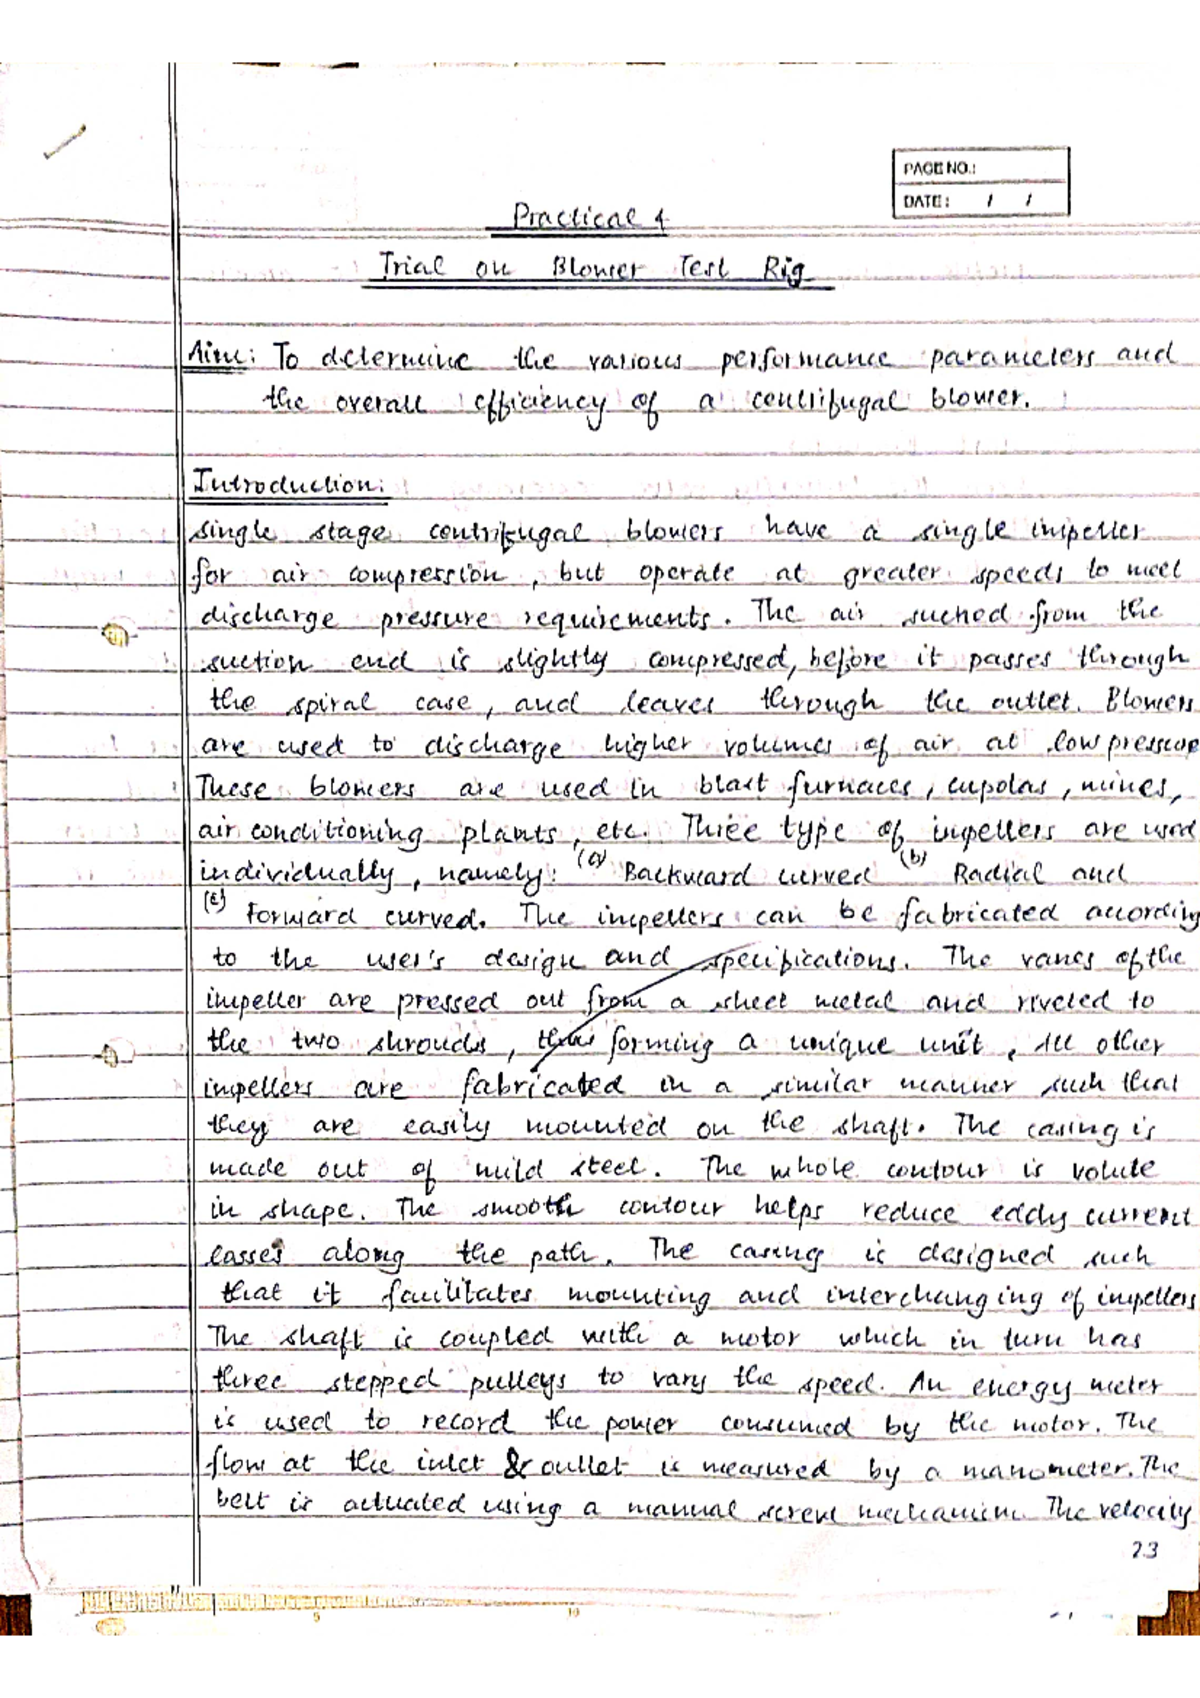 PAGE NO.:
DATE: / /
Practical 4
Trial on Blower Test Rig
Aim: To determine the various performance parameters and
the overall efficiency of a centrifugal blower.
Introduction:
single stage centrifugal blowers have a single impeller
for air compression, but operate at greater speeds to meet
discharge pressure requirements. The air sucked from the
suction end is slightly compressed, before it passes through
the spiral case, and leaves through the outlet. Blowers
are used to discharge higher volumes of air at low pressure
These blowers are used in blast furnaces, cupolas, mines,
air conditioning plants, etc. Three type of impellers are used
individually, namely: (a) Backward curved (b) Radial and
(c) Forward curved. The impellers can be fabricated according
to the user's design and specifications. The vanes of the
impeller are pressed out from a sheet metal and riveted to
the two shrouds, thus forming a unique unit. All other
impellers are fabricated in a similar manner such that
they are easily mounted on the shaft. The casing is
made out of mild steel. The whole contour is volute
in shape. The smooth contour helps reduce eddy current
losses along the path. The casing is designed such
that it facilitates mounting and interchanging of impellers
The shaft is coupled with a motor which in turn has
three stepped pulleys to vary the speed. An energy meter
is used to record the power consumed by the motor. The
flow at the inlet & outlet is measured by a manometer. The
belt is actuated using a manual screw mechanism. The velocity
23
5
10